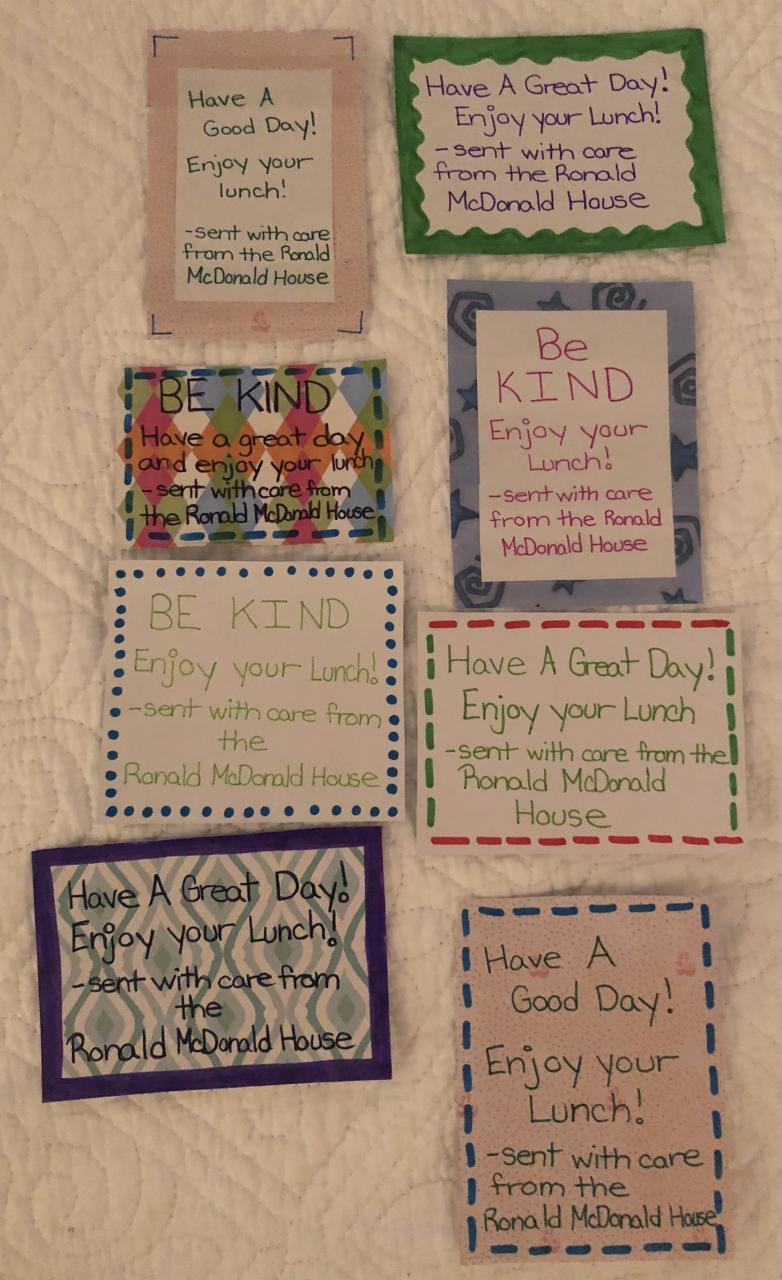 Have A
Good Day!
Enjoy your
lunch!
-sent with care
from the Ronald
McDonald House
Have A Great Day!
Enjoy your Lunch!
-sent with care
from the Ronald
McDonald House
BE KIND
Have a great day
and enjoy your lunch
-sent with care from
the Ronald McDonald House
Be
KIND
Enjoy your
Lunch!
-sent with care
from the Ronald
McDonald House
BE KIND
Enjoy your Lunch!
-sent with care from
the
Ronald McDonald House
Have A Great Day!
Enjoy your Lunch
-sent with care from the
Ronald McDonald
House
Have A Great Day!
Enjoy your Lunch!
-sent with care from
the
Ronald McDonald House
Have A
Good Day!
Enjoy your
Lunch!
-sent with care
from the
Ronald McDonald House